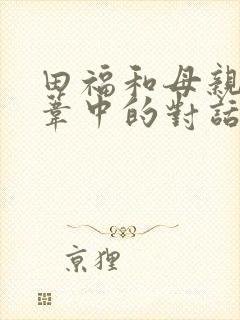 田福和母親
葦中的對話
京狸